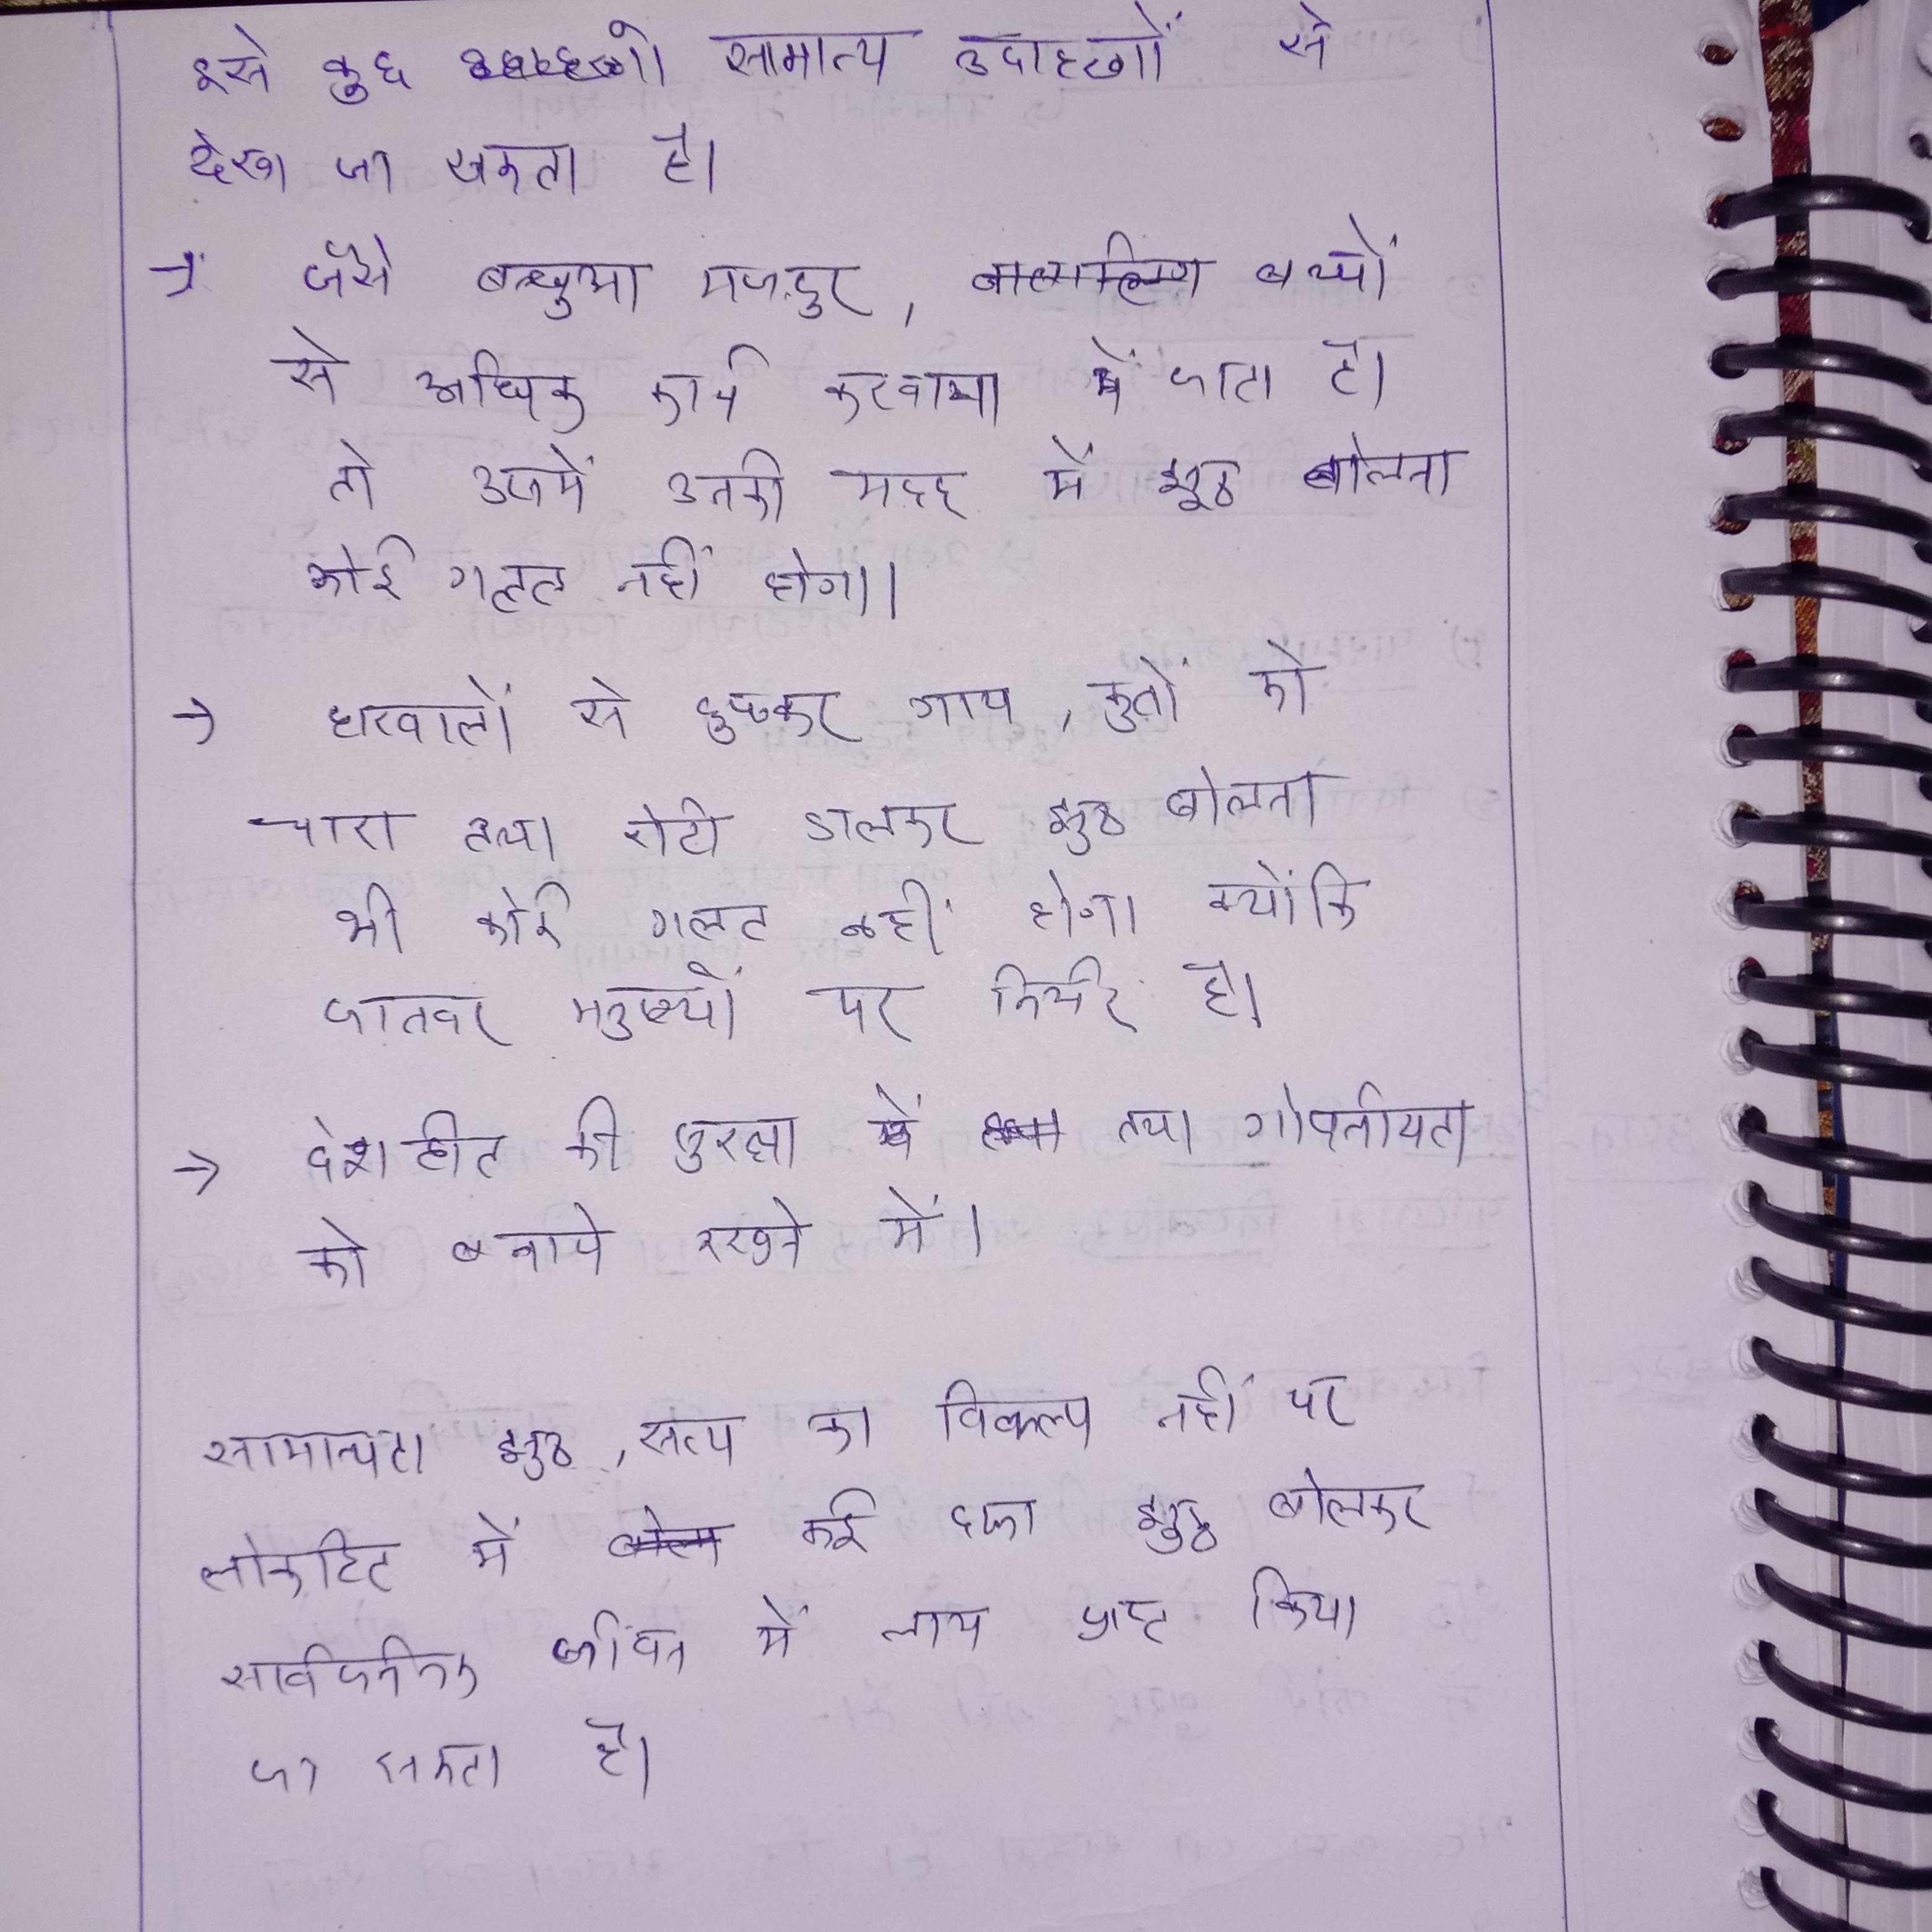 इसे कुछ सामान्य उदाहरणों से
देखा जा सकता है।
→ जैसे बन्धुआ मजदुर, बच्चों
से अधिक कार्य करवाया जाता है।
तो उसमें उनकी मदद में झुठ बोलना
कोई गलत नहीं होगा।
→ घरवालों से छुपकर गाय, कुतों को
चारा तथा रोटी डालकर झुठ बोलना
भी कोई गलत नहीं होगा क्योंकि
जानवर मनुष्यों पर निर्भर है।
→ देशहीत की सुरक्षा में तथा गोपनीयता
को बनाये रखने में।
सामान्यता झुठ, सत्य का विकल्प नहीं पर
लोकहित में कई दफा झुठ बोलकर
सार्वजनीक जीवन में लाभ प्राप्त किया
जा सकता है।